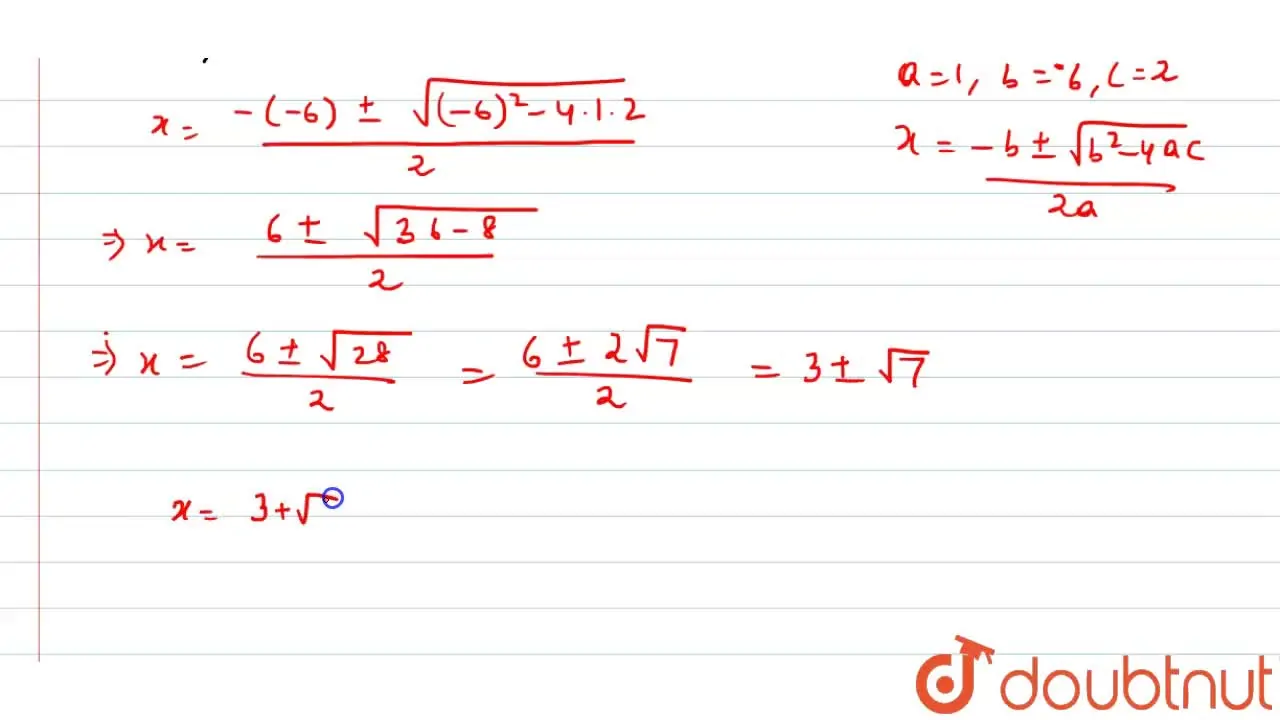 x = -(-6) ± √(-6)² - 4·1·2 / 2
a = 1, b = -6, c = 2
x = -b ± √b² - 4ac / 2a
⇒ x = 6 ± √36 - 8 / 2
⇒ x = 6 ± √28 / 2 = 6 ± 2√7 / 2 = 3 ± √7
x = 3 + √
doubtnut